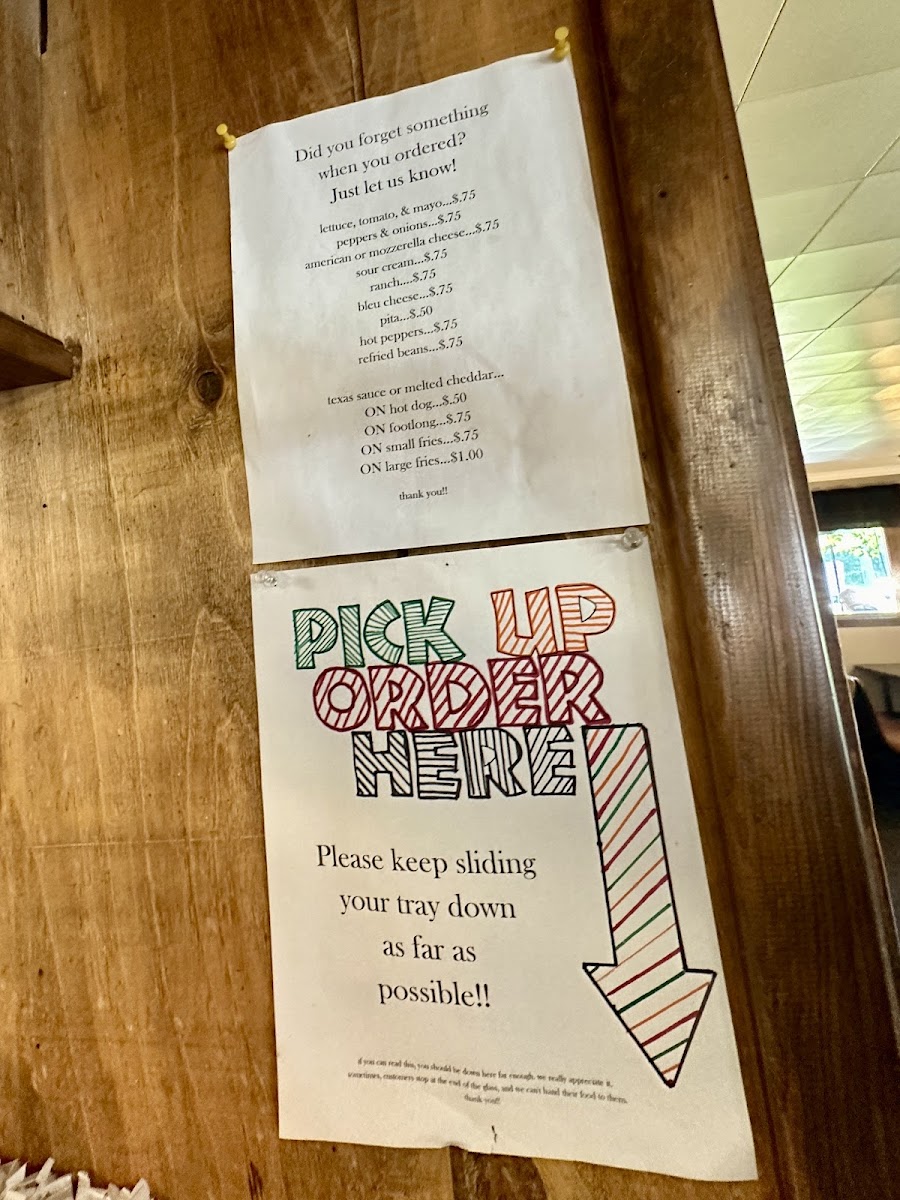 Did you forget something
when you ordered?
Just let us know!
lettuce, tomato, & mayo...$.75
peppers & onions...$.75
american or mozzerella cheese...$.75
sour cream...$.75
ranch....$.75
bleu cheese...$.75
pita...$.50
hot peppers...$.75
refried beans...$.75
texas sauce or melted cheddar...
ON hot dog...$.50
ON footlong...$.75
ON small fries...$.75
ON large fries...$1.00
thank you!!
PICK UP
ORDER
HERE
Please keep sliding
your tray down
as far as
possible!!
if you can read this, you should be down here far enough. we really appreciate it.
sometimes, customers stop at the end of the glass, and we can't hand their food to them.
thank you!!